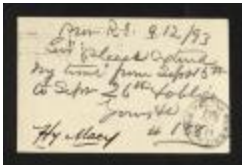 Prov R.I. 9.12/93
Sir please extend
my time from Sept 5th
to Sept 26th & oblige
Yours &c
Hy Macy # 188